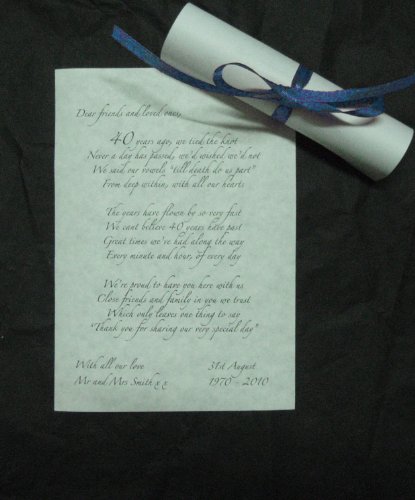 Dear friends and loved ones,
40 years ago, we tied the knot
Never a day has passed, we'd wished we'd not
We said our vowels "till death do us part"
From deep within, with all our hearts
The years have flown by so very fast
We cant believe 40 years have past
Great times we've had along the way
Every minute and hour, of every day
We're proud to have you here with us
Close friends and family in you we trust
Which only leaves one thing to say
"Thank you for sharing our very special day"
With all our love
Mr and Mrs Smith
31st August
1970 - 2010